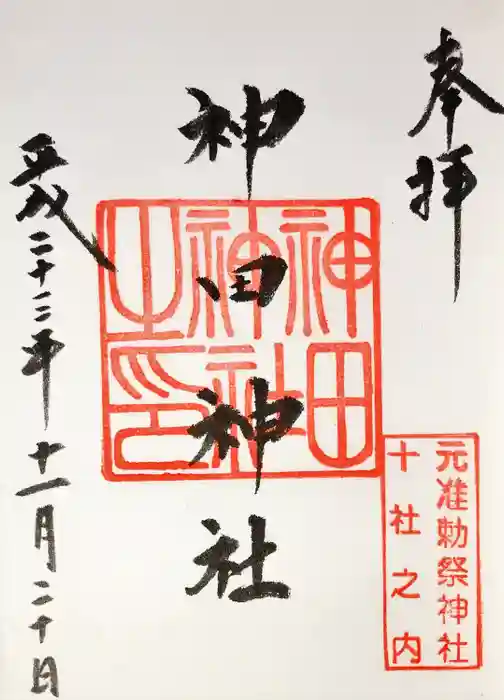 奉拝
神田神社
神田
神社
之印
平成二十三年十一月二十日
元准勅祭神社
十社之内